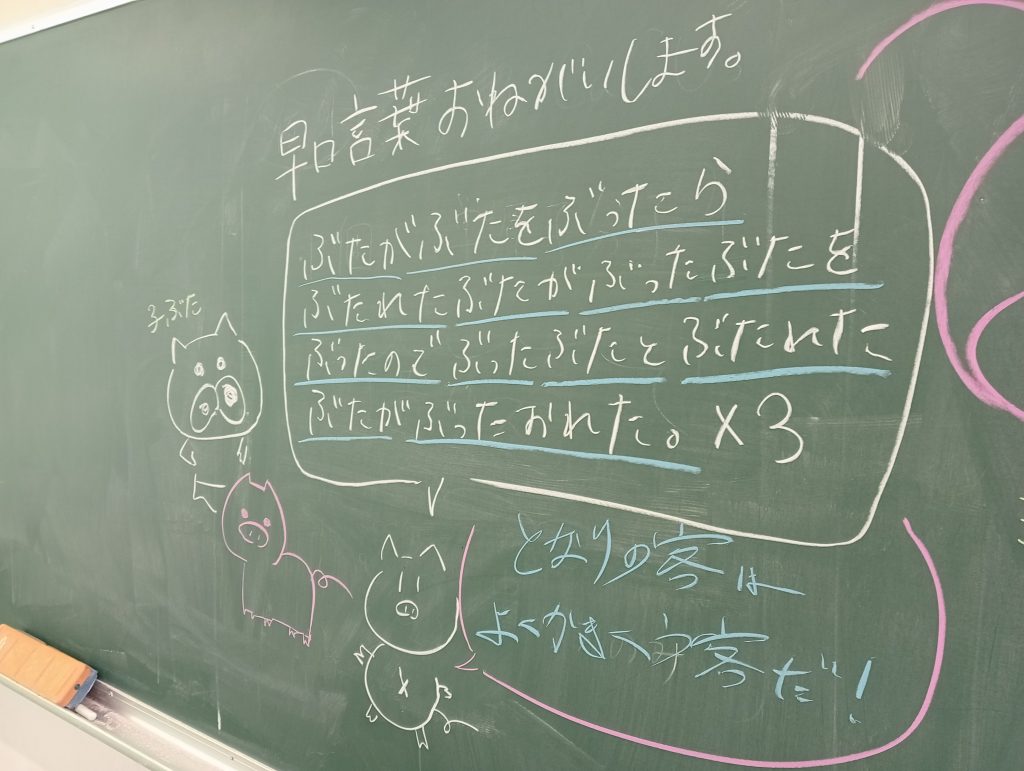 早口言葉おねがいします。
ぶたがぶたをぶったら
ぶたれたぶたがぶったぶたを
ぶったのでぶったぶたとぶたれた
ぶたがぶったおれた。×3
子ぶた
となりの客は
よくかきくう客だ!